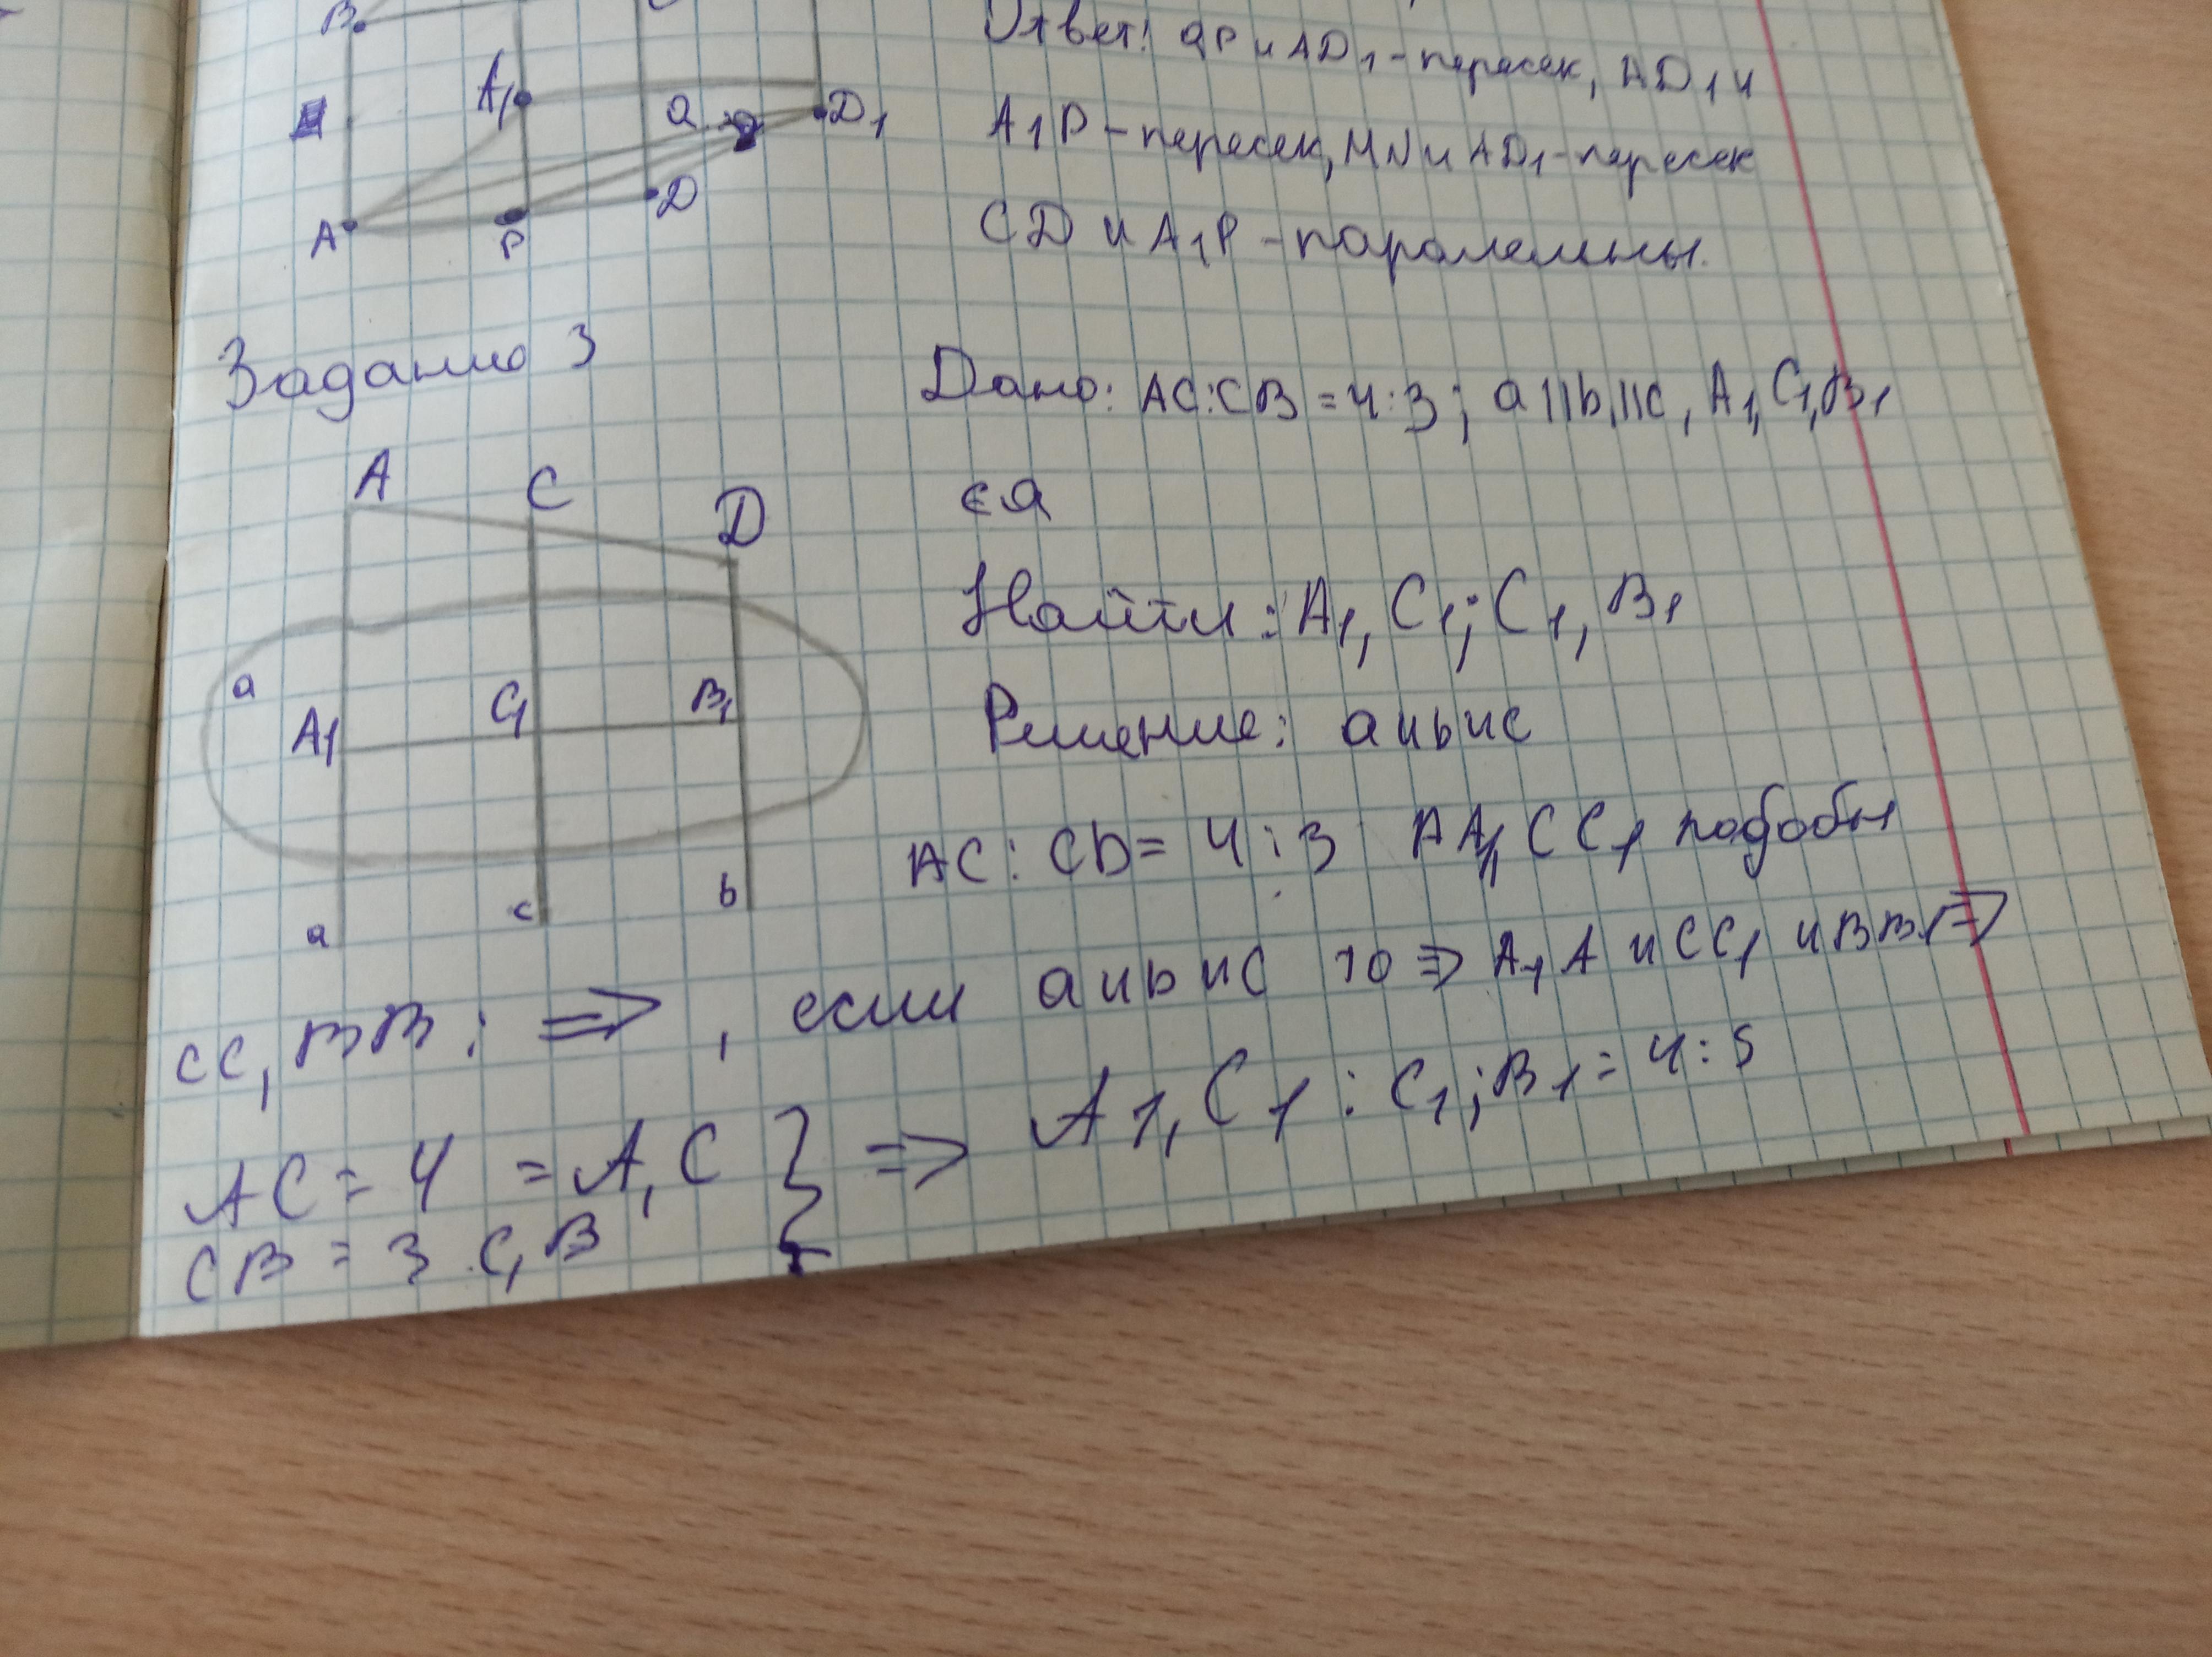 B
A₁
Q
D₁
A
P
D
Ответ: QP и AD₁ - пересек, AD₁ и
A₁P - пересек, MN и AD₁ - пересек
CD и A₁P - паралельны.
Задание 3
Дано: AC:CB = 4:3; a||b,||c, A₁, C₁, B₁
∈ a
A
C
D
a
A₁
C₁
B₁
a
c
b
Найти: A₁, C₁; C₁, B₁
Решение: a и b и c
AC : Cb = 4 : 3 AA₁, CC₁ подобы
CC, BB; ⇒, если a и b и c то ⇒ A₁A и CC₁ и BB₁ ⇒
AC = 4 = A₁C } ⇒ A₁, C₁ : C₁; B₁ = 4:5
CB = 3 C₁B